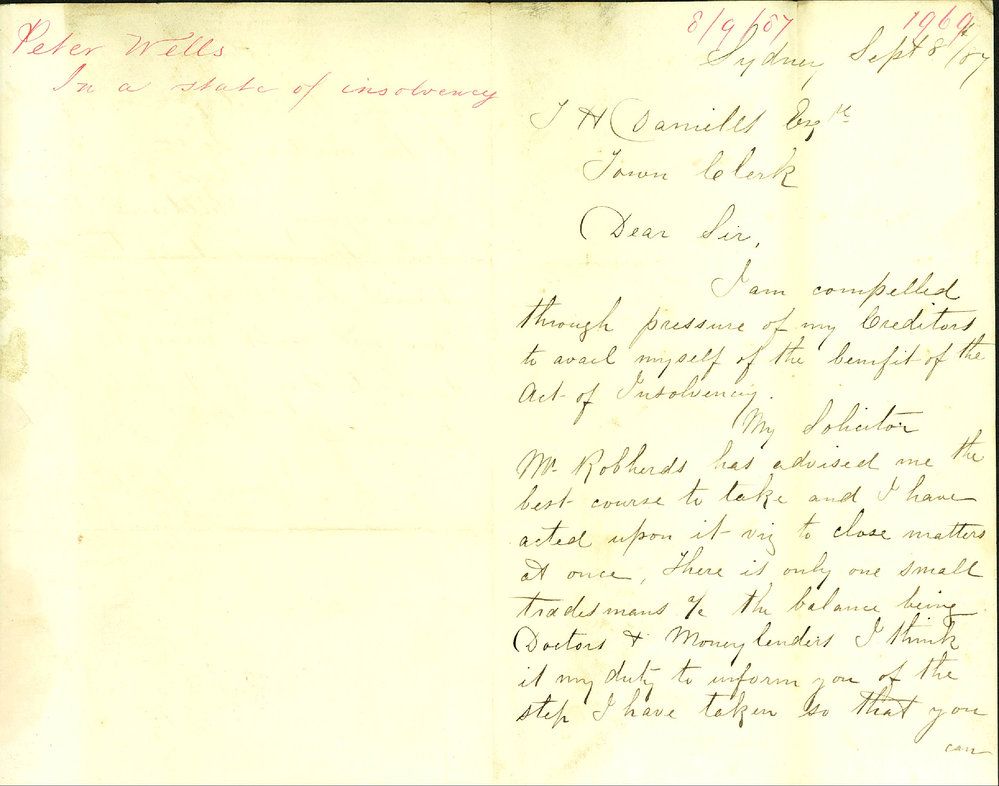 Peter Wells
In a state of insolvency
8/9/87 1969
Sydney Sept 8th/87
J H Daniells Esqre
Town Clerk
Dear Sir,
I am compelled
through pressure of my Creditors
to avail myself of the benefit of the
Act of Insolvency.
My Solicitor
Mr Robherds has advised me the
best course to take and I have
acted upon it viz to close matters
at once, There is only one small
tradesmans a/c the balance being
Doctors & Moneylenders I think
it my duty to inform you of the
step I have taken so that you
can